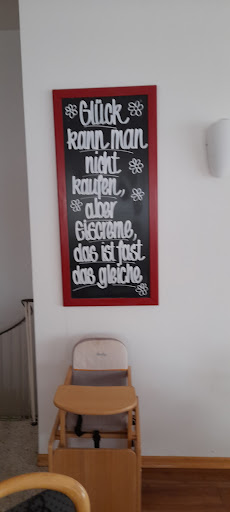 Glück
kann man
nicht
kaufen,
aber
Eiscreme,
das ist fast
das gleiche